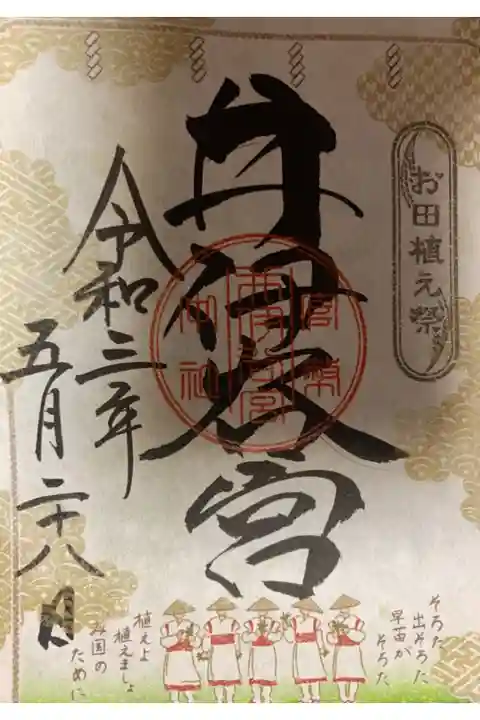 お田植え祭
井伊谷宮
官幣
中社
令和三年
五月二十八日
そろた
出そろた
早苗が
そろた
植えよ
植えましょ
み国の
ために